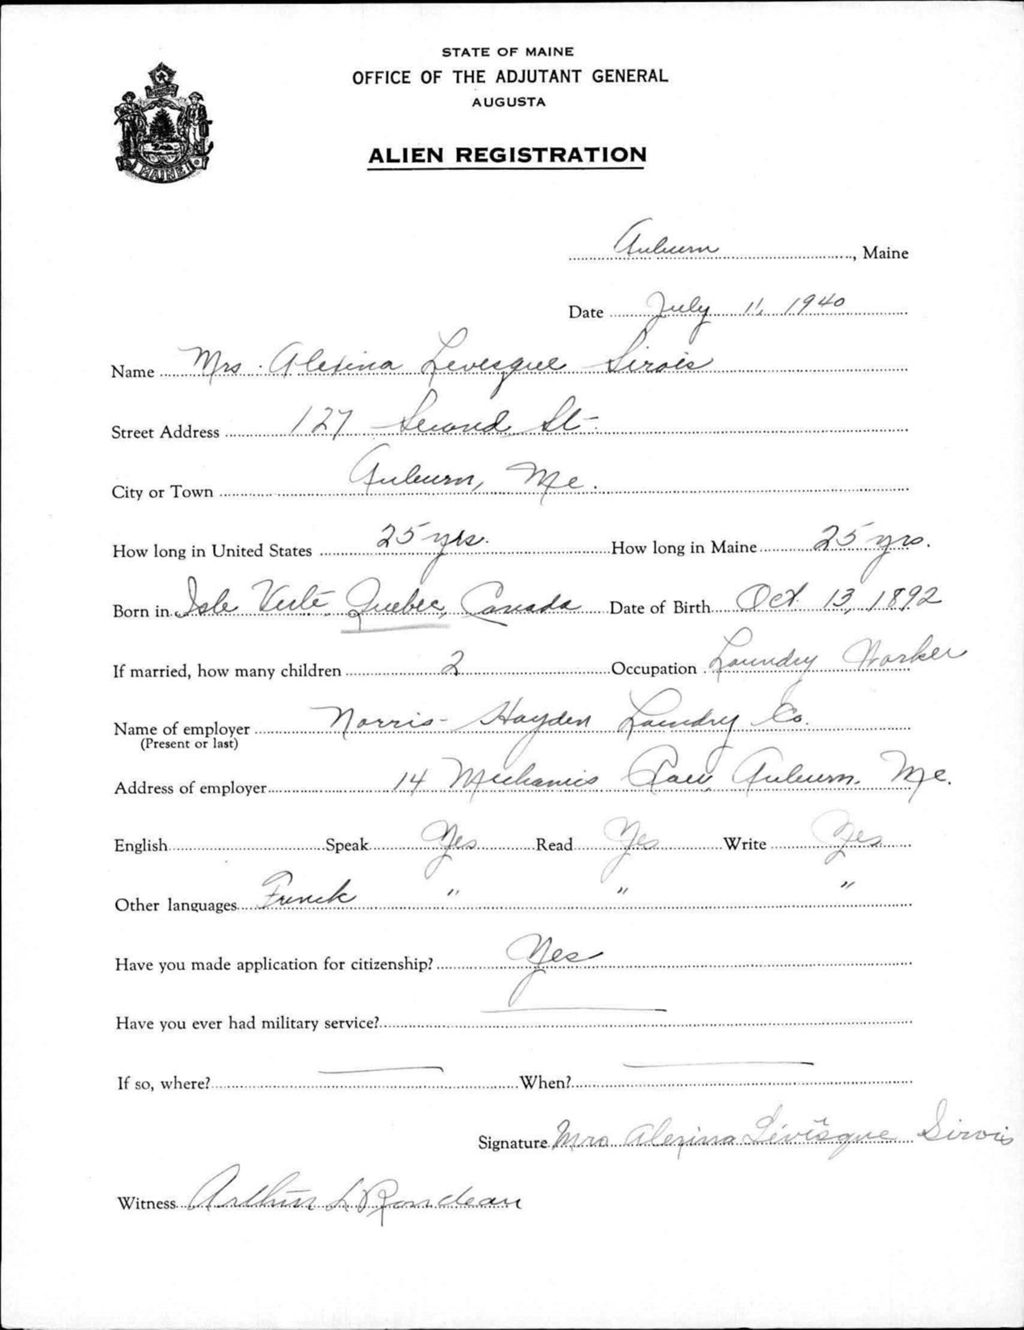 STATE OF MAINE
OFFICE OF THE ADJUTANT GENERAL
AUGUSTA
ALIEN REGISTRATION
MAINE
Auburn, Maine
Date July 11, 1940
Name Mrs. Alexina Levesque Sirois
Street Address 127 Second St.
City or Town Auburn, Me.
How long in United States 25 yrs. How long in Maine 25 yrs.
Born in Isle Verte, Quebec, Canada Date of Birth Oct 13, 1892
If married, how many children 2 Occupation Laundry Worker
Name of employer Norris-Hayden Laundry Co.
(Present or last)
Address of employer 14 Mechanics Row, Auburn, Me.
English Speak Yes Read Yes Write Yes
Other languages French " " "
Have you made application for citizenship? Yes
Have you ever had military service? —
If so, where? — When? —
Signature Mrs Alexina Lévêsque Sirois
Witness Arthur L Rondeau